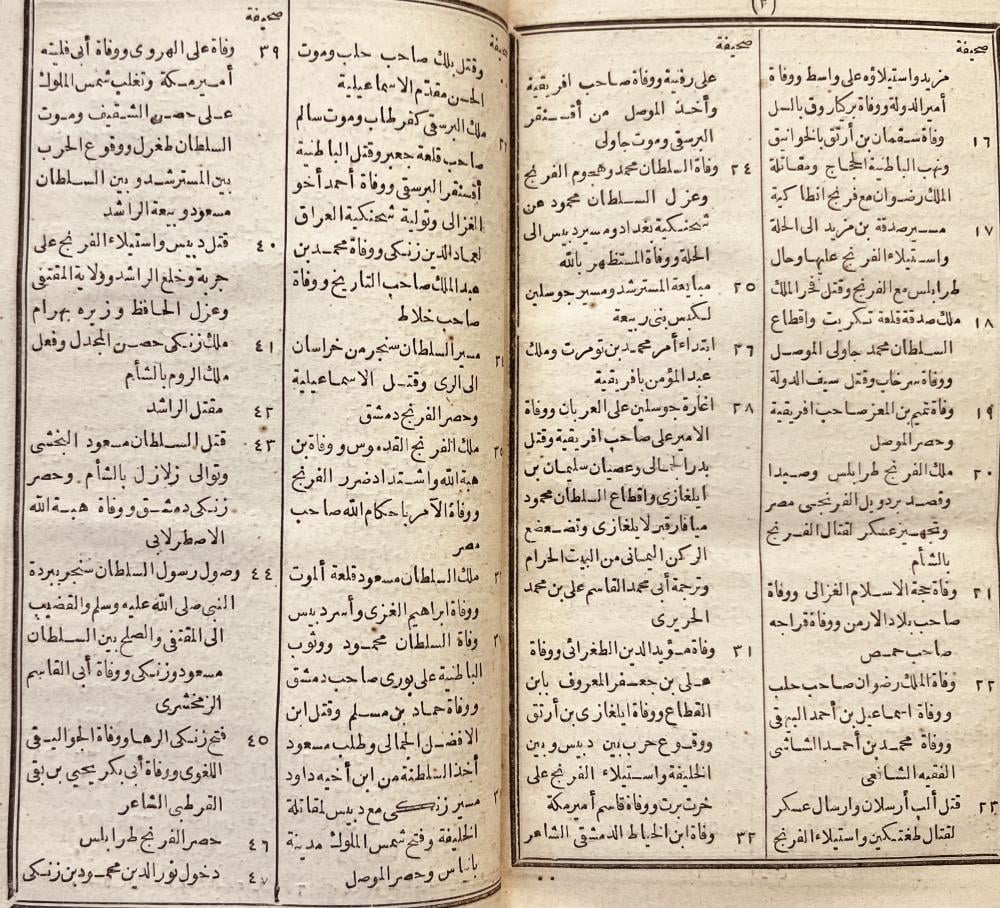 (٢)
صحيفة
مزيد واستيلاؤه على واسط ووفاة
أمير الدولة ووفاة بركاروق بالسل
١٦ وفاة سقمان بن أرتق بالخوانيق
ونهب الباطنية الحجاج ومقاتلة
الملك رضوان مع فرنج انطاكية
١٧ مسير صدقة بن مزيد الى الحلة
واستيلاء الفرنج عليها وحال
طرابلس مع الفرنج وقتل فخر الملك
١٨ ملك صدقة قلعة تكريت واقطاع
السلطان محمد جاولى الموصل
ووفاة سرخاب وقتل سيف الدولة
١٩ وفاة تميم بن المعز صاحب افريقية
وحصر الموصل
٢٠ ملك الفرنج طرابلس وصيدا
وقصد بردويل الفرنجى مصر
وتجهيز عسكر لقتال الفرنج
بالشأم
٢١ وفاة حجة الاسلام الغزالى ووفاة
صاحب بلاد الارمن ووفاة قراجه
صاحب حمص
٢٢ وفاة الملك رضوان صاحب حلب
ووفاة اسماعيل بن أحمد البيهقى
ووفاة محمد بن أحمد الشاشى
الفقيه الشافعى
٢٣ قتل ألب أرسلان وارسال عسكر
لقتال طغتكين واستيلاء الفرنج
صحيفة
على رفنية ووفاة صاحب افريقية
وأخذ الموصل من أقسنقر
البرسقى وموت جاولى
٢٤ وفاة السلطان محمد وهجوم الفرنج
وعزل السلطان محمود عن
شحنكية بغداد ومسير دبيس الى
الحلة ووفاة المستظهر بالله
٢٥ مبايعة المسترشد ومسير جوسلين
لكبس بنى ربيعة
٢٦ ابتداء أمر محمد بن تومرت وملك
عبد المؤمن بافريقية
٢٨ اغارة جوسلين على العربان ووفاة
الامير على صاحب افريقية وقتل
بدر الجمالى وعصيان سليمان بن
ايلغازى واقطاع السلطان محمود
ميافارقين لايلغازى وتضعضع
الركن اليمانى من البيت الحرام
وترجمة أبى محمد القاسم على بن محمد
الحريرى
٣١ وفاة مؤيد الدين الطغرائى ووفاة
على بن جعفر المعروف بابن
القطاع ووفاة ايلغازى بن أرتق
ووقوع حرب بين دبيس وبين
الخليفة واستيلاء الفرنج على
خرت برت ووفاة قاسم أمير مكة
٣٢ وفاة ابن الخياط الدمشقى الشاعر
صحيفة
وقتل بلك صاحب حلب وموت
الحسن مقدم الاسماعيلية
ملك البرسقى كفرطاب وموت سالم
صاحب قلعة جعبر وقتل الباطنية
أقسنقر البرسقى ووفاة أحمد أخو
الغزالى وتولية شحنكية العراق
لعماد الدين زنكى ووفاة محمد بن
عبد الملك صاحب التاريخ ووفاة
صاحب خلاط
مسير السلطان سنجر من خراسان
الى الرى وقتل الاسماعيلية
وحصر الفرنج دمشق
ملك الفرنج القدموس ووفاة بن
هبة الله واشتداد ضرر الفرنج
ووفاة الآمر باحكام الله صاحب
مصر
ملك السلطان مسعود قلعة ألموت
ووفاة ابراهيم الغزى وأسر دبيس
وفاة السلطان محمود ووثوب
الباطنية على بورى صاحب دمشق
ووفاة حماد بن مسلم وقتل ابن
الافضل الجمالى وطلب مسعود
أخذ السلطنة من ابن أخيه داود
مسير زنكى مع دبيس لمقاتلة
الخليفة وفتح شمس الملوك مدينة
بانياس وحصر الموصل
صحيفة
٣٩ وفاة على الهروى ووفاة أبى فليتة
أمير مكة وتغلب شمس الملوك
على حصن الشقيف وموت
السلطان طغرل ووقوع الحرب
بين المسترشد وبين السلطان
مسعود وبيعة الراشد
٤٠ قتل دبيس واستيلاء الفرنج على
جربة وخلع الراشد وولاية المقتفى
وعزل الحافظ وزيره بهرام
٤١ ملك زنكى حصن المجدل وفعل
ملك الروم بالشأم
٤٢ مقتل الراشد
٤٣ قتل السلطان مسعود البخشى
وتوالى زلازل بالشأم وحصر
زنكى دمشق ووفاة هبة الله
الاصطرلابى
٤٤ وصول رسول السلطان سنجر ببردة
النبى صلى الله عليه وسلم والقضيب
الى المقتفى والصلح بين السلطان
مسعود وزنكى ووفاة أبى القاسم
الزمخشرى
٤٥ فتح زنكى الرها ووفاة الجواليقى
اللغوى ووفاة أبى بكر يحيى بن بقى
القرطبى الشاعر
٤٦ حصر الفرنج طرابلس
٤٧ دخول نور الدين محمود بن زنكى